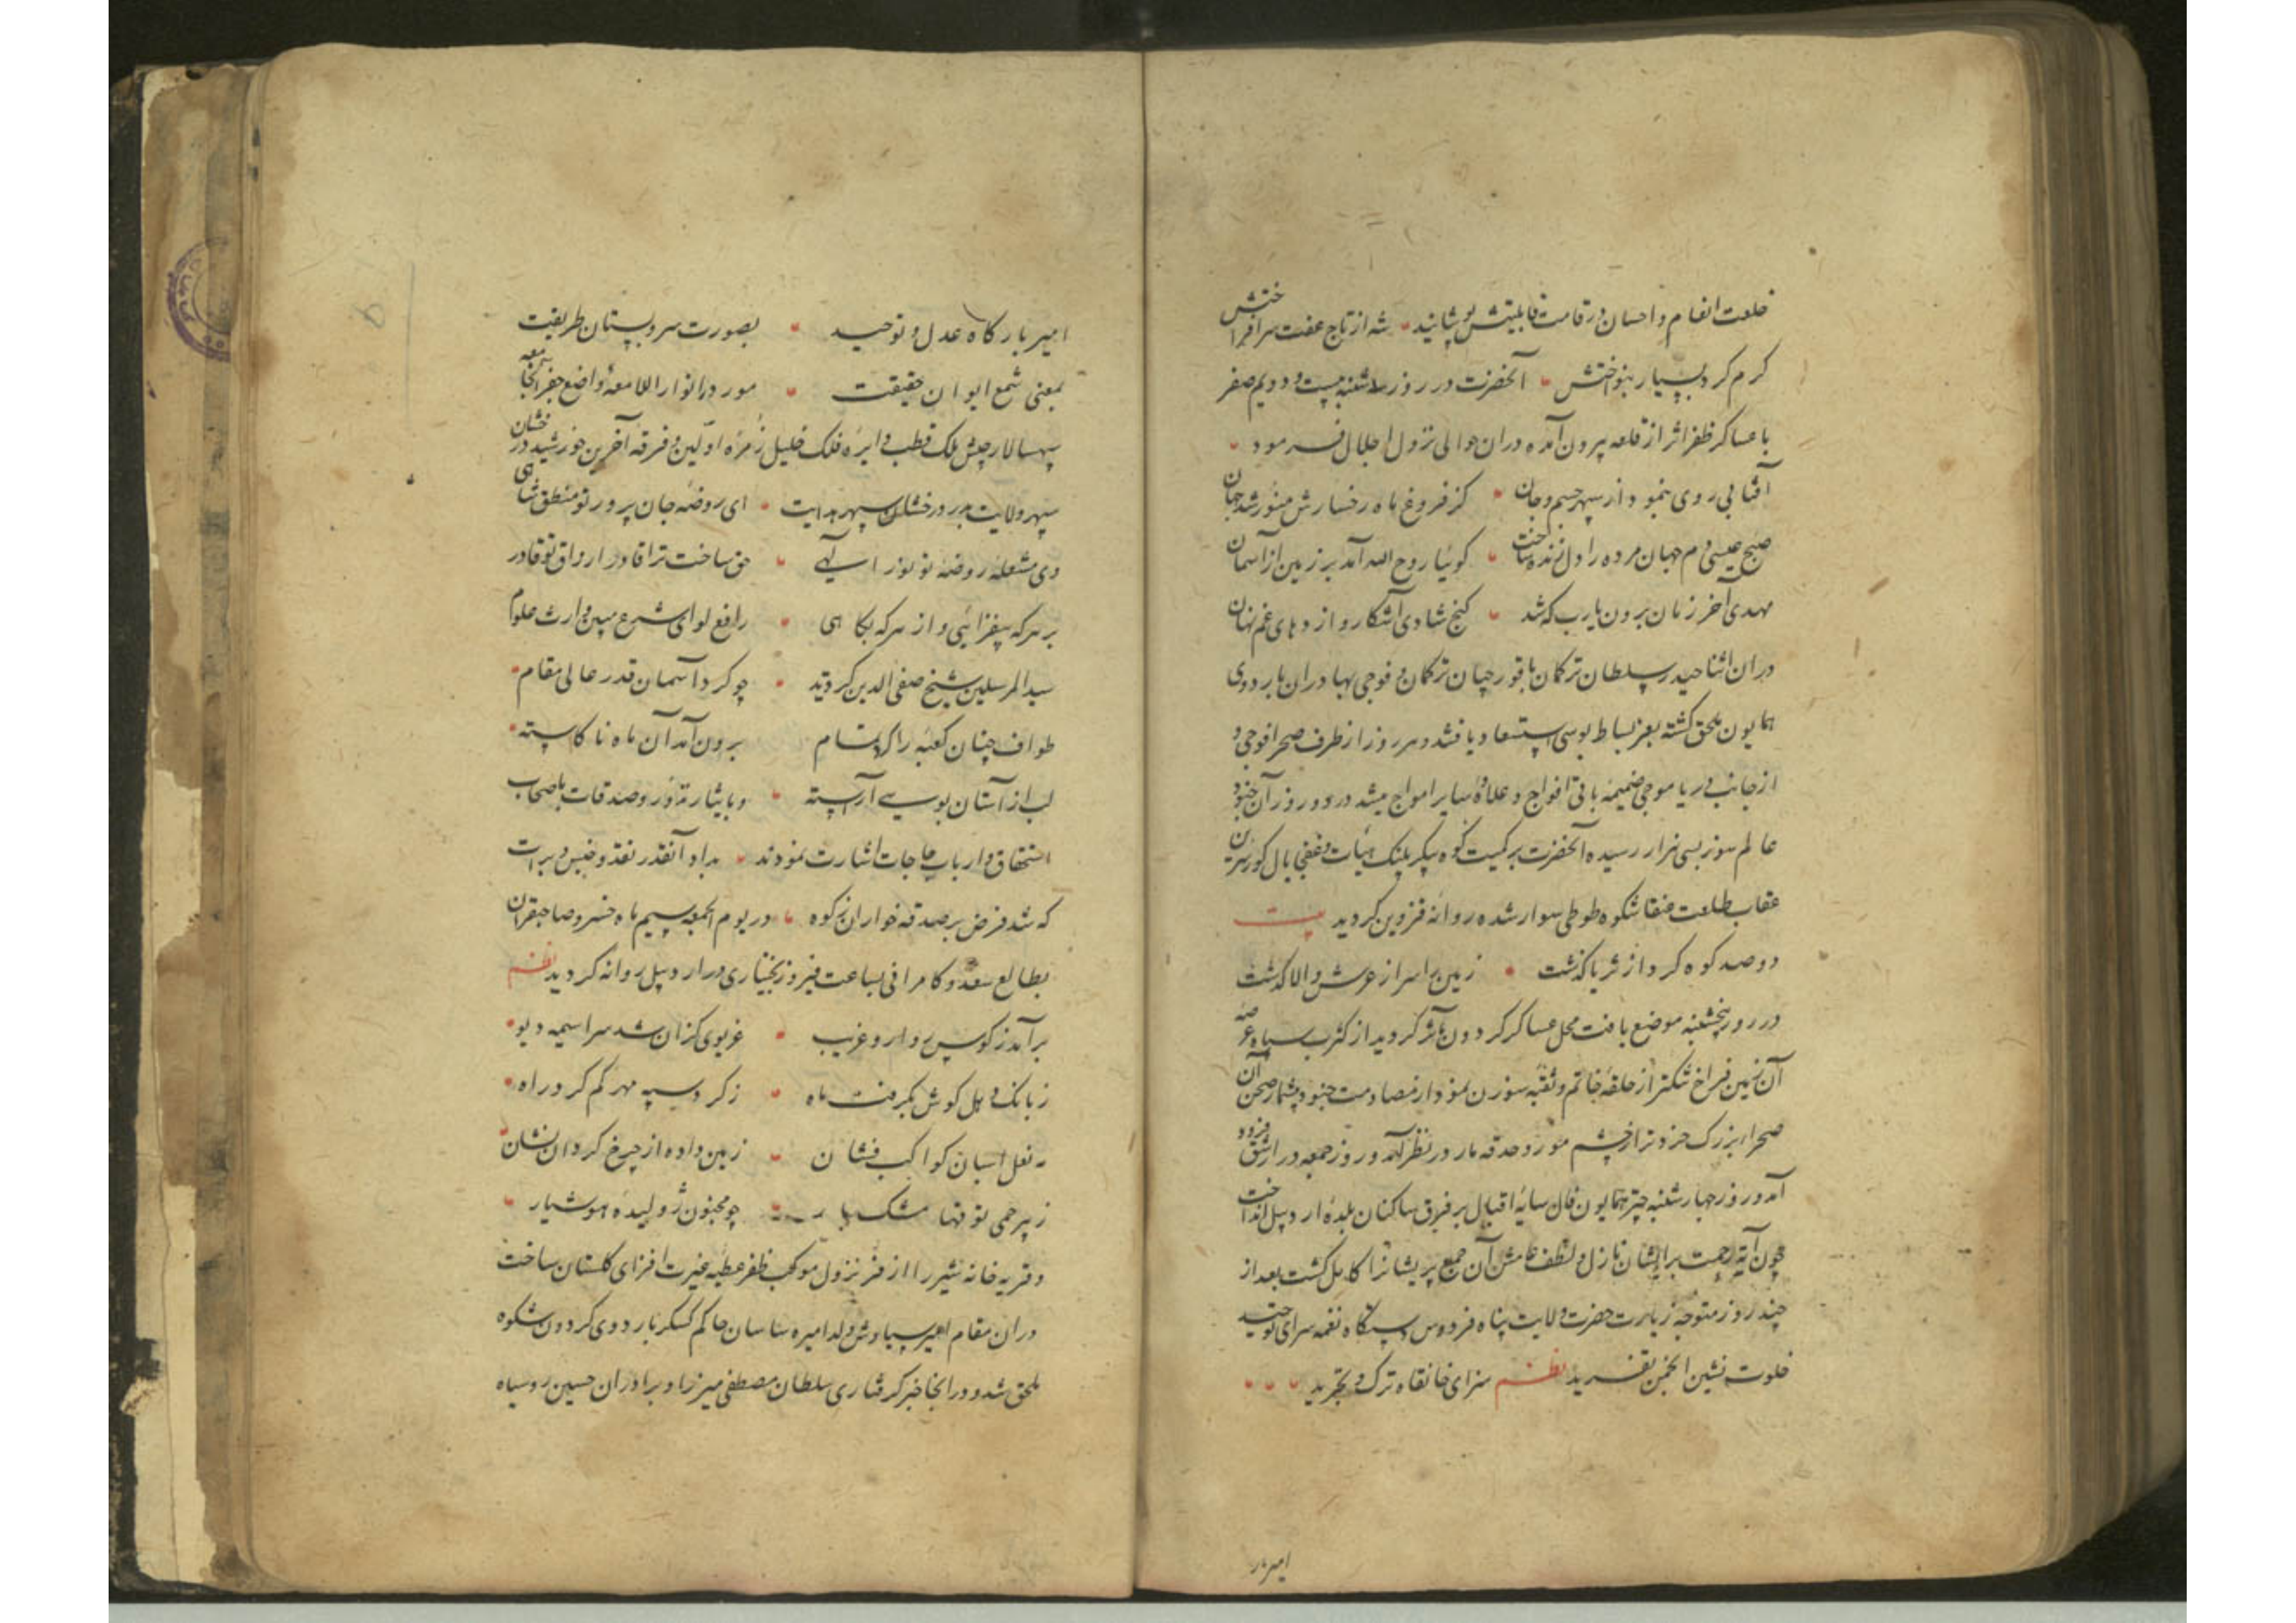 خلعت انعام و احسان در قامت قابلیتش پوشانید شه از تاج عفت سرافراختش
کرم کرد بسیار بنواختش آنحضرت در روز سه شنبه بیست و دویم صفر
با عساکر ظفر اثر از قلعه بیرون آمده دران حوالی نزول اجلال فرمود
آفتابی روی بنمود از سپهر جسم و جان کز فروغ ماه رخسارش منور شد جهان
صبح عیسی دم جهان مرده را دل زنده ساخت گوئیا روح الله آمد بر زمین از آسمان
مهدی آخر زمان برون یارب که شد کنج شادی آشکار و اژدهای غم نهان
دران اثنا حیدر سلطان ترکمان با قورچیان ترکمان و فوجی بهادران باردوی
همایون ملحق گشته بعز بساط بوسی استسعاد یافتند و هر روز از طرف صحرا فوجی و
از جانب دریا موجی ضمیمه باقی افواج و علاوه سایر امواج میشد در دو روز آن جنود
عالم سوز بسی هزار رسیده آنحضرت بر کمیت کوه پیکر پلنک هیأت
عقاب طلعت عنقا شکوه طوطی سوار شده روانه قزوین کردید بیت
دو صد کوه کرد از ثریا گذشت زمین را سر از عرش والا گذشت
در روز پنجشنبه موضع یافت محل عساکر کردون مآثر کردید از کثرت سپاه عرصه
آن زمین فراخ تنکتر از حلقه خاتم و ثقبه سوزن نمود و از مصادمت جنود بیشمار صحن آن
صحراء بزرک خردتر از چشم مور و حدقه مار در نظر آمد و روز جمعه در ارشق فرود
آمد و روز چهارشنبه چتر همایون فال سایه اقبال بر فرق ساکنان بلده اردبیل انداخت
چون آیه رحمت بر ایشان نازل و لطف عامش آن جمع پریشانرا کامل کشت بعد از
چند روز متوجه زیارت حضرت ولایت پناه فردوس دستگاه نغمه سرای توحید
خلوت نشین انجمن تفرید نظم سزای خانقاه ترک و تجرید
امیر بار
امیر بارگاه عدل و توحید بصورت سرو بستان طریقت
بمعنی شمع ایوان حقیقت مورد انوار اللامعه واضع جفر الجامعه
سپهسالار جیش ملک قطب دایره فلک خلیل زمره اولین و فرقه آخرین خورشید درخشان
سپهر ولایت بدر درخشان سپهر هدایت ای روضه جان پرور تو منطق شاهی
وی مشعله روضه تو نور الهی حق ساخت ترا قادر ارواق تو قادر
بر هر که بیفزائی و از هر که بکاهی رافع لوای شرع مبین وارث علوم
سید المرسلین شیخ صفی الدین کردید چو کرد آسمان قدر عالی مقام
طواف چنان کعبه را تمام برون آمد آن ماه ناکاسته
لب از آستان بوسی آراسته و بایثار نذور و صدقات باصحاب
استحقاق و ارباب حاجات اشارت نمودند بداد آنقدر نقد و جنس و برات
که شد فرض بر صدقه خواران زکوه در یوم الجمعه سییم ماه خسرو صاحبقران
بطالع سعد و کامرانی بساعت فیروز بختیاری در اردبیل روانه کردید نظم
برآمد ز کوس روارو غریب غریوی کزان شد سراسیمه دیو
ز بانک دهل کوش بکرفت ماه ز کرد سپه مهر کم کرد راه
ز نعل اسبان کواکب فشان زمین داده از چرخ کردان نشان
ز پرچمی توقها مشک بار چو مجنون ژولیده هوشیار
و قریه خانه شیر را از فر نزول موکب ظفر عطیه غیرت افزای کلستان ساخت
دران مقام امیر سیاوش ولد امیره ساسان حاکم کسکر باردوی کردون شکوه
ملحق شد و در انجا خبر کرفتاری سلطان مصطفی میرزا و برادران حسین روسیاه